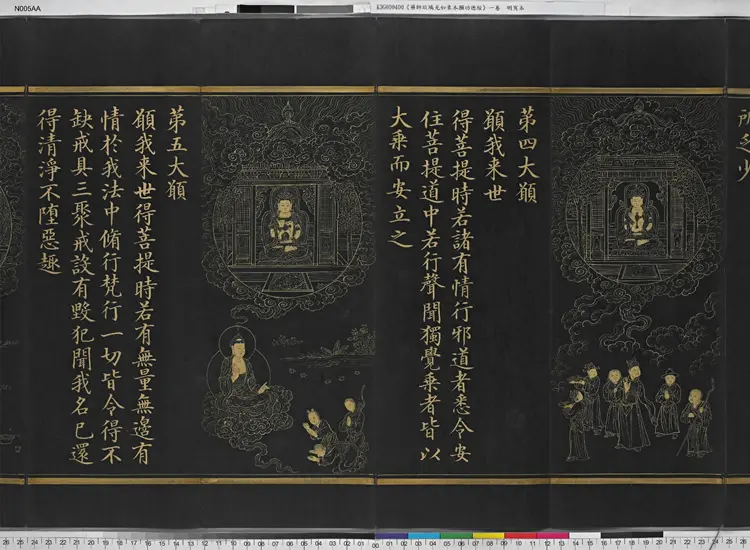 N005AA
《藥師琉璃光如來本願功德經》一卷
所乏少
第四大願
願我来世
得菩提時若諸有情行邪道者悉令安
住菩提道中若行聲聞獨覺乗者皆以
大乗而安立之
第五大願
願我来世得菩提時若有無量無邊有
情於我法中脩行梵行一切皆令得不
缺戒具三聚戒設有毀犯聞我名已還
得清淨不堕惡趣